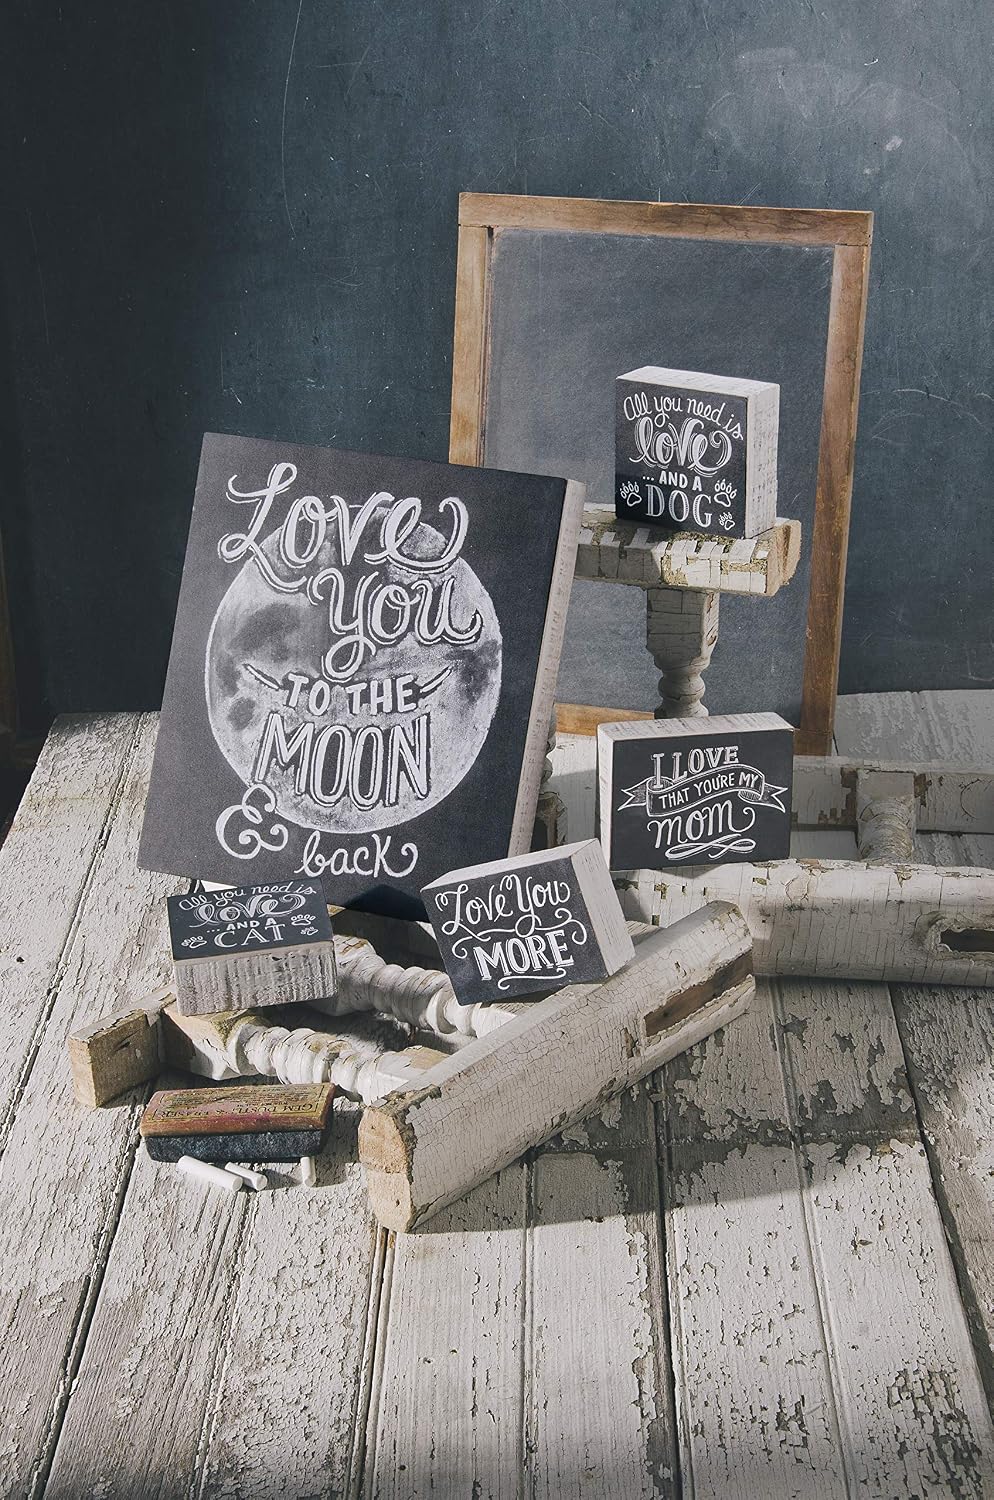 All you need is
love
...AND A
DOG
Love
You
TO THE
MOON
&
back
I LOVE
THAT YOU'RE MY
mom
Love You
MORE
All you need is
love
...AND A
CAT